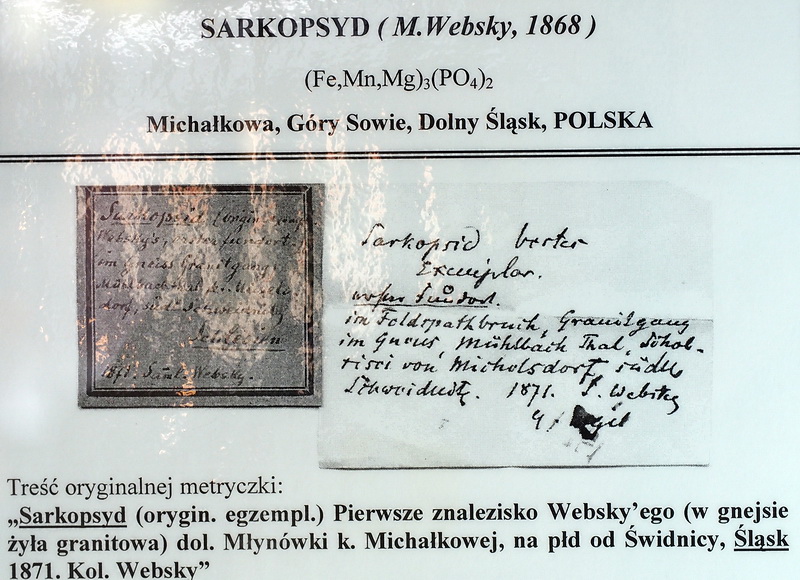 SARKOPSYD ( M.Websky, 1868 )
(Fe,Mn,Mg)₃(PO₄)₂
Michałkowa, Góry Sowie, Dolny Śląsk, POLSKA
Sarkopsid (origin.
Websky's, erster Fundort.
im Gneiss Granitgang,
Mühlbach Thal b. Michels-
dorf, südl. Schweidnitz
Schlesien
1871. Saml. Websky.
Sarkopsid bestes
Exemplar.
erster Fundort.
im Feldspathbruch, Granitgang
im Gneus, Mühlbach Thal, Schol-
tisei von Michelsdorf südl.
Schweidnitz. 1871. S. Websky
Treść oryginalnej metryczki:
„Sarkopsyd (orygin. egzempl.) Pierwsze znalezisko Websky’ego (w gnejsie
żyła granitowa) dol. Młynówki k. Michałkowej, na płd od Świdnicy, Śląsk
1871. Kol. Websky”